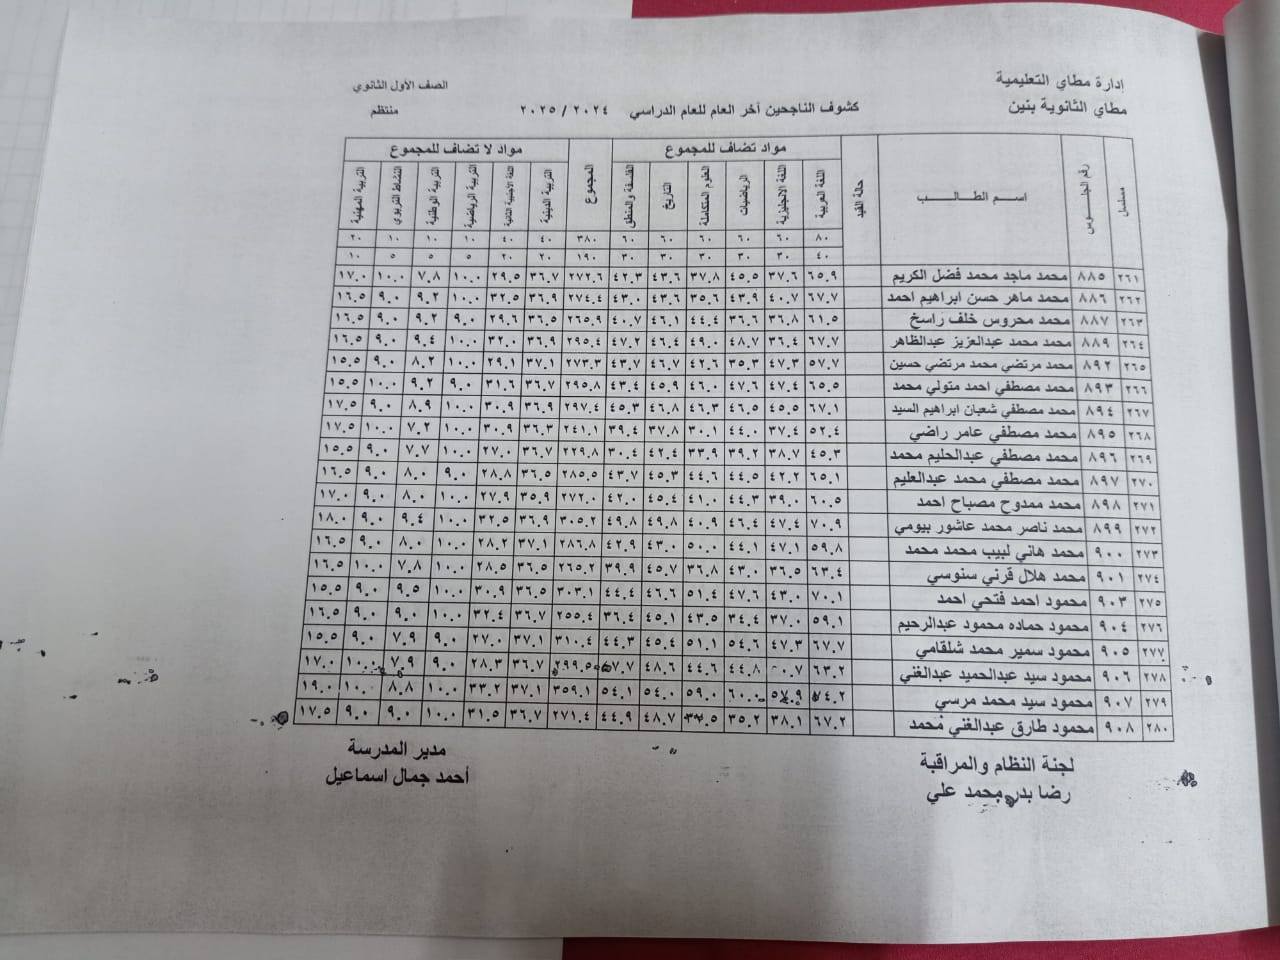 إدارة مطاي التعليمية
مطاي الثانوية بنين
كشوف الناجحين آخر العام للعام الدراسي ٢٠٢٤ / ٢٠٢٥
الصف الأول الثانوي
منتظم
مسلسل رقم الجلوس اسم الطالب حالة القيد مواد تضاف للمجموع المجموع مواد لا تضاف للمجموع
اللغة العربية اللغة الانجليزية الرياضيات العلوم المتكاملة التاريخ الفلسفة والمنطق التربية الدينية اللغة الأجنبية الثانية التربية الرياضية التربية الوطنية النشاط التربوي التربية المهنية
٨٠ ٦٠ ٦٠ ٦٠ ٦٠ ٦٠ ٣٨٠ ٤٠ ٤٠ ١٠ ١٠ ١٠ ٢٠
٤٠ ٣٠ ٣٠ ٣٠ ٣٠ ٣٠ ١٩٠ ٢٠ ٢٠ ٥ ٥ ٥ ١٠
٢٦١ ٨٨٥ محمد ماجد محمد فضل الكريم ٦٥.٩ ٣٧.٦ ٤٥.٥ ٣٧.٨ ٤٣.٦ ٤٢.٣ ٢٧٢.٦ ٣٦.٧ ٢٩.٥ ١٠.٠ ٧.٨ ١٠.٠ ١٧.٠
٢٦٢ ٨٨٦ محمد ماهر حسن ابراهيم احمد ٦٧.٧ ٤٠.٧ ٤٣.٩ ٣٥.٦ ٤٣.٦ ٤٣.٠ ٢٧٤.٤ ٣٦.٩ ٣٢.٥ ١٠.٠ ٩.٢ ٩.٠ ١٦.٥
٢٦٣ ٨٨٧ محمد محروس خلف راسخ ٦١.٥ ٣٦.٨ ٣٦.٦ ٤٤.٤ ٤٦.١ ٤٠.٧ ٢٦٥.٩ ٣٦.٥ ٢٩.٦ ٩.٠ ٩.٢ ٩.٠ ١٦.٥
٢٦٤ ٨٨٩ محمد محمد عبدالعزيز عبدالظاهر ٦٧.٧ ٣٦.٤ ٤٨.٧ ٤٩.٠ ٤٦.٤ ٤٧.٢ ٢٩٥.٤ ٣٦.٩ ٣٢.٠ ١٠.٠ ٩.٤ ٩.٠ ١٦.٥
٢٦٥ ٨٩٢ محمد مرتضي محمد مرتضي حسين ٥٧.٧ ٤٧.٣ ٣٥.٣ ٤٢.٦ ٤٦.٧ ٤٣.٧ ٢٧٣.٣ ٣٧.١ ٢٩.١ ١٠.٠ ٨.٢ ٩.٠ ١٥.٥
٢٦٦ ٨٩٣ محمد مصطفي احمد متولي محمد ٦٥.٥ ٤٧.٤ ٤٧.٦ ٤٦.٠ ٤٥.٩ ٤٣.٤ ٢٩٥.٨ ٣٦.٧ ٣١.٦ ٩.٠ ٩.٢ ١٠.٠ ١٥.٥
٢٦٧ ٨٩٤ محمد مصطفي شعبان ابراهيم السيد ٦٧.١ ٤٥.٥ ٤٦.٥ ٤٦.٣ ٤٦.٨ ٤٥.٣ ٢٩٧.٤ ٣٦.٩ ٣٠.٩ ١٠.٠ ٨.٩ ٩.٠ ١٧.٥
٢٦٨ ٨٩٥ محمد مصطفي عامر راضي ٥٢.٤ ٣٧.٤ ٤٤.٠ ٣٠.١ ٣٧.٨ ٣٩.٤ ٢٤١.١ ٣٦.٣ ٣٠.٩ ١٠.٠ ٧.٢ ١٠.٠ ١٧.٥
٢٦٩ ٨٩٦ محمد مصطفي عبدالحليم محمد ٤٥.٣ ٣٨.٧ ٣٩.٢ ٣٣.٩ ٤٢.٤ ٣٠.٤ ٢٢٩.٨ ٣٦.٧ ٢٧.٠ ١٠.٠ ٧.٧ ٩.٠ ١٥.٥
٢٧٠ ٨٩٧ محمد مصطفي محمد عبدالعليم ٦٥.١ ٤٢.٢ ٤٤.٥ ٤٤.٦ ٤٥.٣ ٤٣.٧ ٢٨٥.٥ ٣٦.٥ ٢٨.٨ ٩.٠ ٨.٠ ٩.٠ ١٦.٥
٢٧١ ٨٩٨ محمد ممدوح مصباح احمد ٦٠.٥ ٣٩.٠ ٤٤.٣ ٤١.٠ ٤٥.٤ ٤٢.٠ ٢٧٢.٠ ٣٥.٩ ٢٧.٩ ١٠.٠ ٨.٠ ٩.٠ ١٧.٠
٢٧٢ ٨٩٩ محمد ناصر محمد عاشور بيومي ٧٠.٩ ٤٧.٤ ٤٦.٤ ٤٠.٩ ٤٩.٨ ٤٩.٨ ٣٠٥.٢ ٣٦.٩ ٣٢.٥ ١٠.٠ ٩.٤ ٩.٠ ١٨.٠
٢٧٣ ٩٠٠ محمد هاني لبيب محمد محمد ٥٩.٨ ٤٧.١ ٤٤.١ ٥٠.٠ ٤٣.٠ ٤٢.٩ ٢٨٦.٨ ٣٧.١ ٢٨.٢ ١٠.٠ ٨.٠ ٩.٠ ١٦.٥
٢٧٤ ٩٠١ محمد هلال قرني سنوسي ٦٣.٤ ٣٦.٥ ٤٣.٠ ٣٦.٨ ٤٥.٧ ٣٩.٩ ٢٦٥.٢ ٣٦.٥ ٢٨.٥ ١٠.٠ ٧.٨ ١٠.٠ ١٦.٥
٢٧٥ ٩٠٣ محمود احمد فتحي احمد ٧٠.١ ٤٣.٠ ٤٧.٦ ٥١.٤ ٤٦.٦ ٤٤.٤ ٣٠٣.١ ٣٦.٥ ٣٠.٩ ١٠.٠ ٩.٥ ٩.٠ ١٥.٥
٢٧٦ ٩٠٤ محمود حماده محمود عبدالرحيم ٥٩.١ ٣٧.٠ ٣٤.٤ ٤٣.٥ ٤٥.١ ٣٦.٤ ٢٥٥.٤ ٣٦.٧ ٣٢.٤ ١٠.٠ ٩.٠ ٩.٠ ١٦.٥
٢٧٧ ٩٠٥ محمود سمير محمد شلقامي ٦٧.٧ ٤٧.٣ ٥٤.٦ ٥١.١ ٤٥.٤ ٤٤.٣ ٣١٠.٤ ٣٧.١ ٢٧.٠ ٩.٠ ٧.٩ ٩.٠ ١٥.٥
٢٧٨ ٩٠٦ محمود سيد عبدالحميد عبدالغني ٦٣.٢ ٤٤.٨ ٤٤.٦ ٤٨.٦ ٢٩٩.٥ ٣٦.٧ ٢٨.٣ ٩.٠ ٧.٩ ١٠.٠ ١٧.٠
٢٧٩ ٩٠٧ محمود سيد محمد مرسي ٧٤.٢ ٥٧.٩ ٦٠.٠ ٥٩.٠ ٥٤.٠ ٥٤.١ ٣٥٩.١ ٣٧.١ ٣٣.٢ ١٠.٠ ٨.٨ ١٠.٠ ١٩.٠
٢٨٠ ٩٠٨ محمود طارق عبدالغني محمد ٦٧.٢ ٣٨.١ ٣٥.٢ ٤٨.٧ ٤٤.٩ ٢٧١.٤ ٣٦.٧ ٣١.٥ ١٠.٠ ٩.٠ ٩.٠ ١٧.٥
لجنة النظام والمراقبة
رضا بدر محمد علي
مدير المدرسة
أحمد جمال اسماعيل